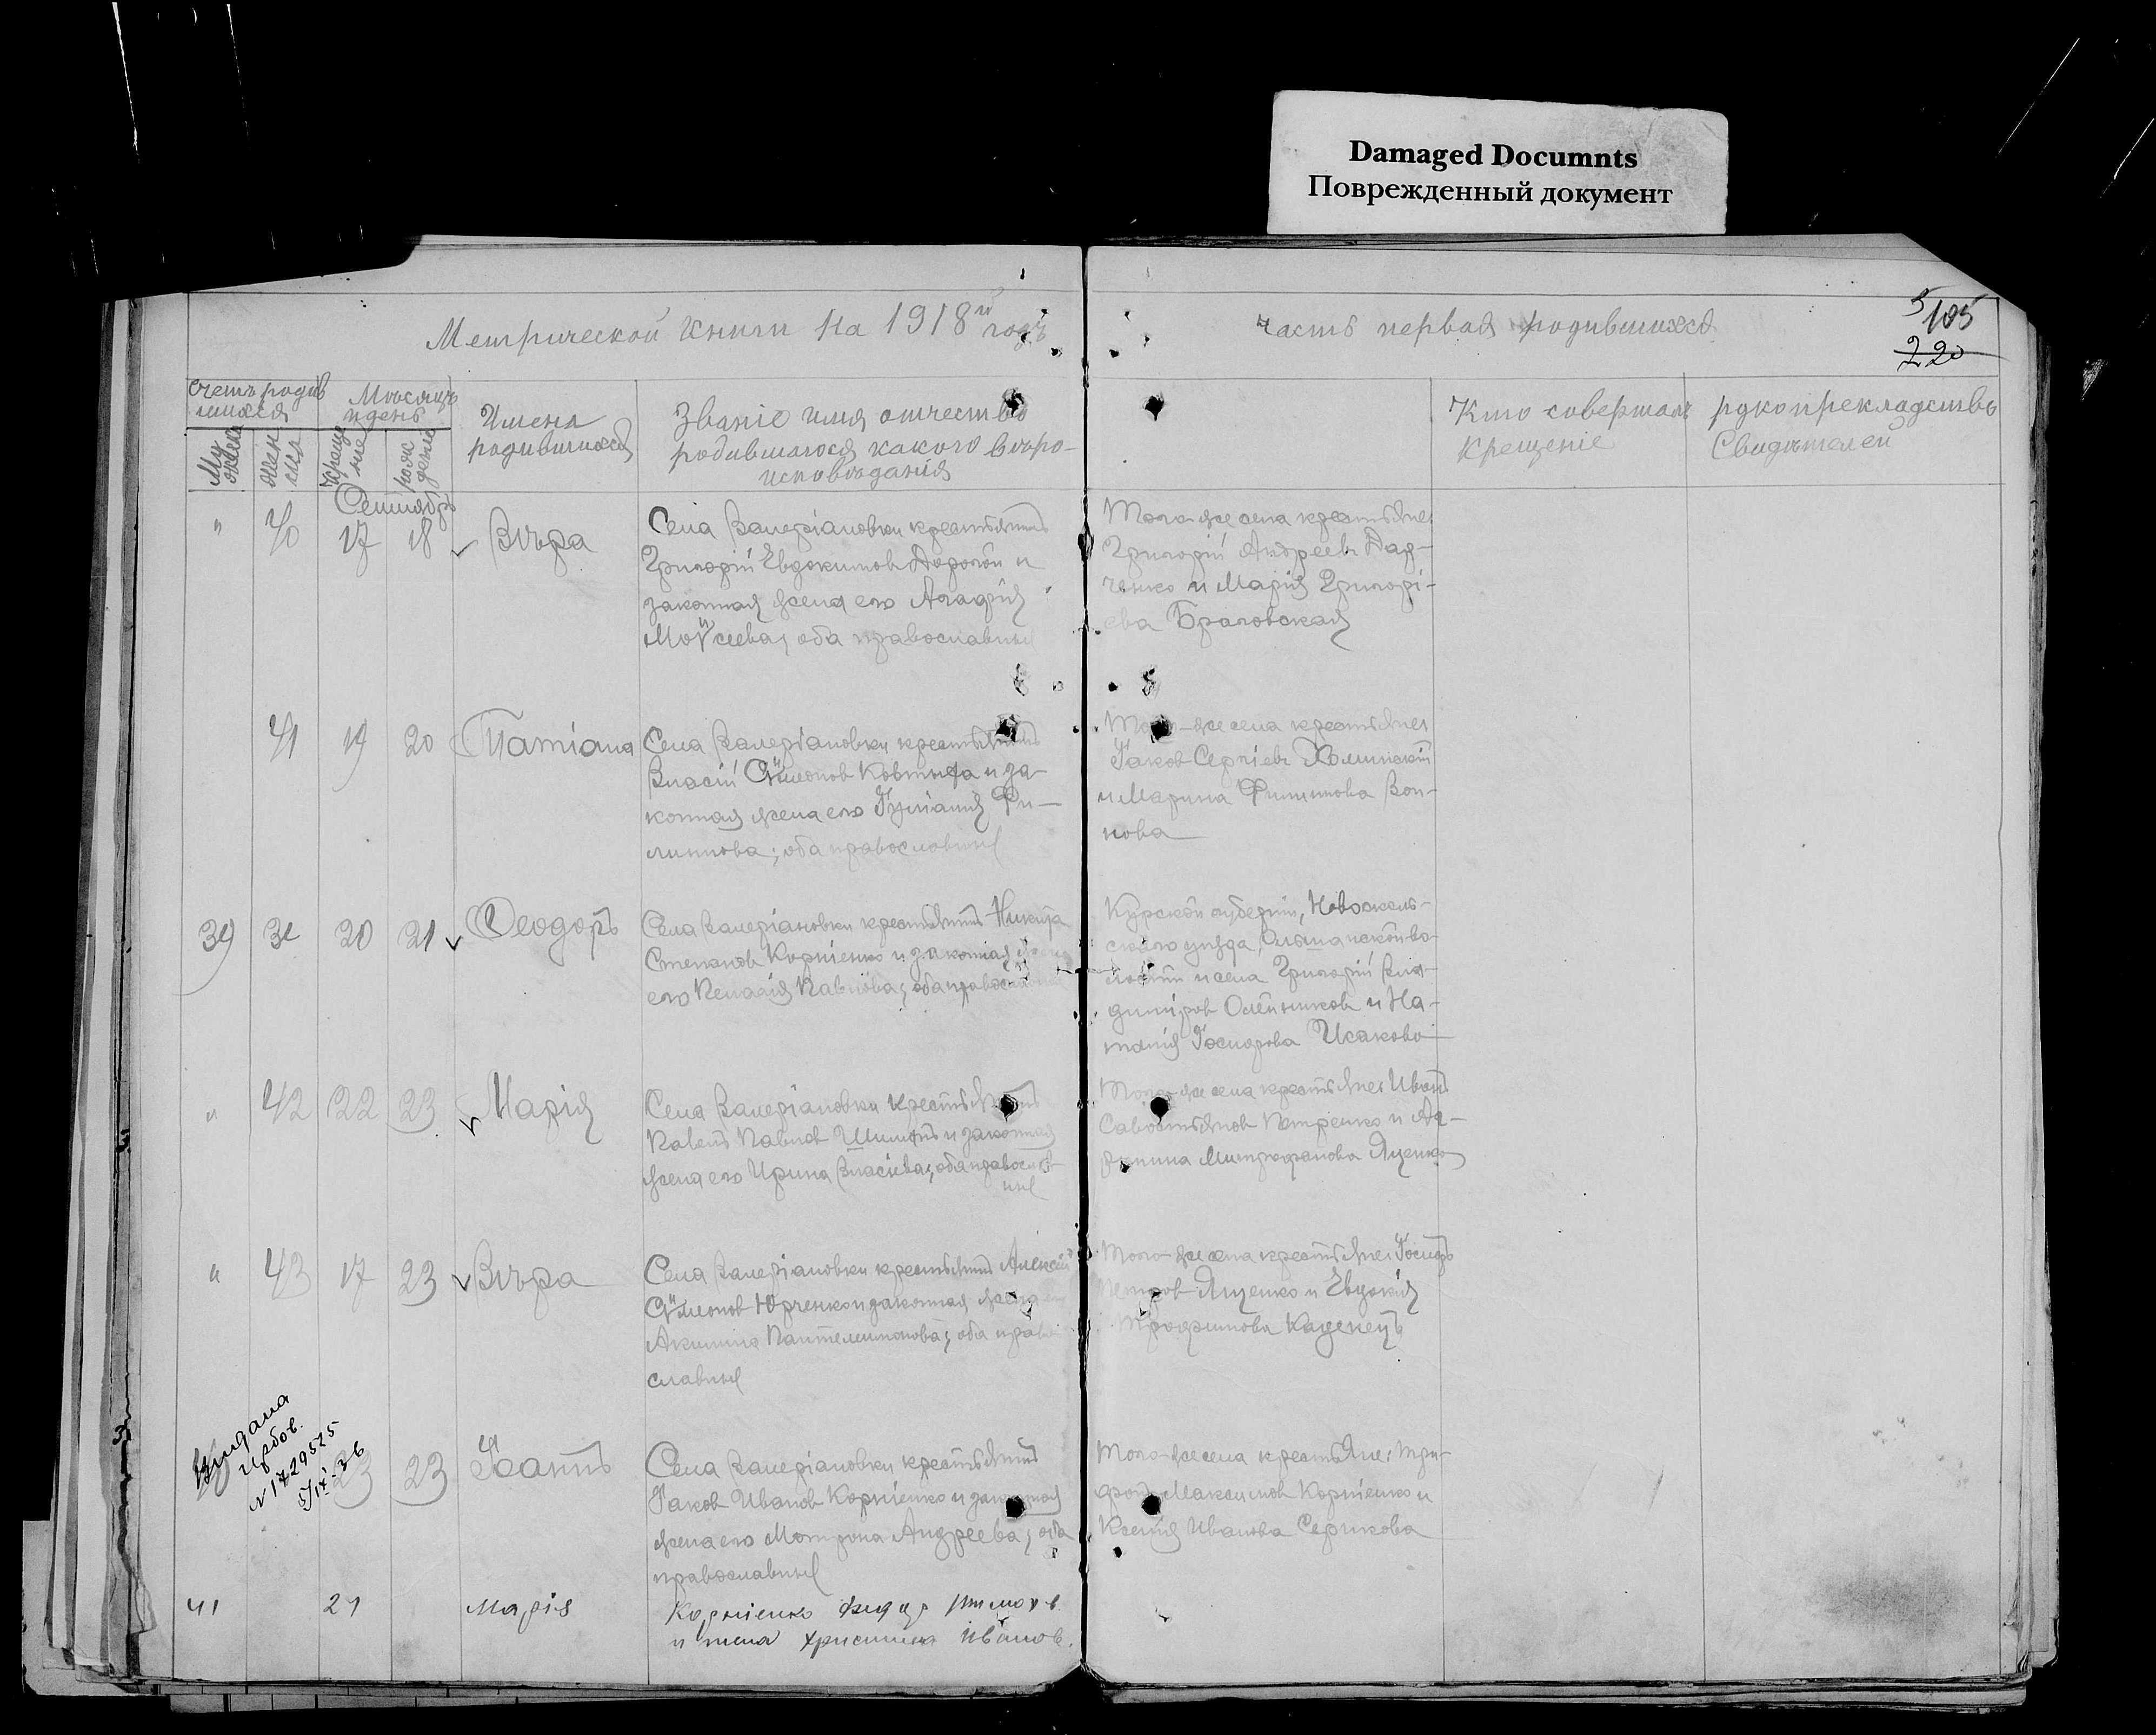 Damaged Documnts
Поврежденный документ
Метрической книги на 1918й годъ
часть первая родившихся
5
105
220
Счетъ родив
шихся
Мѣсяцъ
и день
Имена
родившихся
Званіе имя отчество
родившагося какого вѣро-
исповѣданія
Кто совершалъ
крещеніе
рукоприкладство
Свидѣтелей
Му
жеска
Жен
ска
Креще
ніе
рож
деніе
Сентябрь
" 40 17 18 Вѣра
Села Валеріановки крестьянинъ
Григорій Евдокимов Дорогой и
законная жена его Агафія
Моѵсеева; оба православные
Того-же села крестьяне:
Григорій Андреевъ
ченко и Марія Григорі-
ева Браговская
41 19 20 Татіана
Села Валеріановки крестьянинъ
Власій Симонов Ковтыга и за-
конная жена его Іуліанія Фи-
липпова; оба православные
Того-же села крестьяне:
Іаков Сергіевъ
и Марина Филиппова Вол-
кова
39 20 21 Ѳеодоръ
Села Валеріановки крестьянинъ Никита
Степанов Корніенко и законная жена
его Пелагія Павлова; оба православные
Курской губерніи, Новооскол-
скаго уѣзда, Ольшанской во-
лости и села Григорій Вла-
диміров Олейников и На-
талія Іосифова Исакова
" 42 22 23 Марія
Села Валеріановки крестьянинъ
Павелъ Павлов и законная
жена его Ирина Власіева; оба православ-
ные
Того-же села крестьяне: Иванъ
Савостьянов Петренко и Ма-
Митрофанова Яценко
" 43 17 23 Вѣра
Села Валеріановки крестьянинъ Алексій
Симонов Юрченко и законная жена его
Акилина Пантелеимонова; оба право-
славные
Того-же села крестьяне: Іосифъ
Петров Яценко и Евдокія
Трофимова Каденецъ
Выдана
N 1729525
5/IV-36
23 23 Іоаннъ
Села Валеріановки крестьянинъ
Іаков Иванов Корніенко и законная
жена его Матрона Андреева; оба
православные
Того-же села крестьяне: Три-
фонъ Максимов Корніенко и
Ксенія Иванова Серикова
41 21 Марія
Корніенко
и жена христина Иванов.